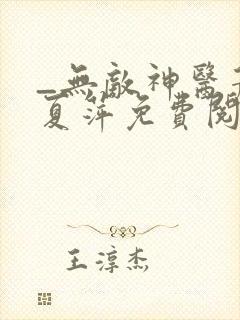 _無敵神醫
夏萍免費閱
王淳杰